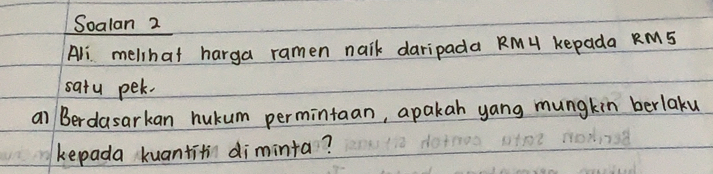 Soalan 2
Ali melihat harga ramen naik daripada RM4 kepada RM5
satu pek.
a) Berdasarkan hukum permintaan, apakah yang mungkin berlaku
kepada kuantiti diminta?